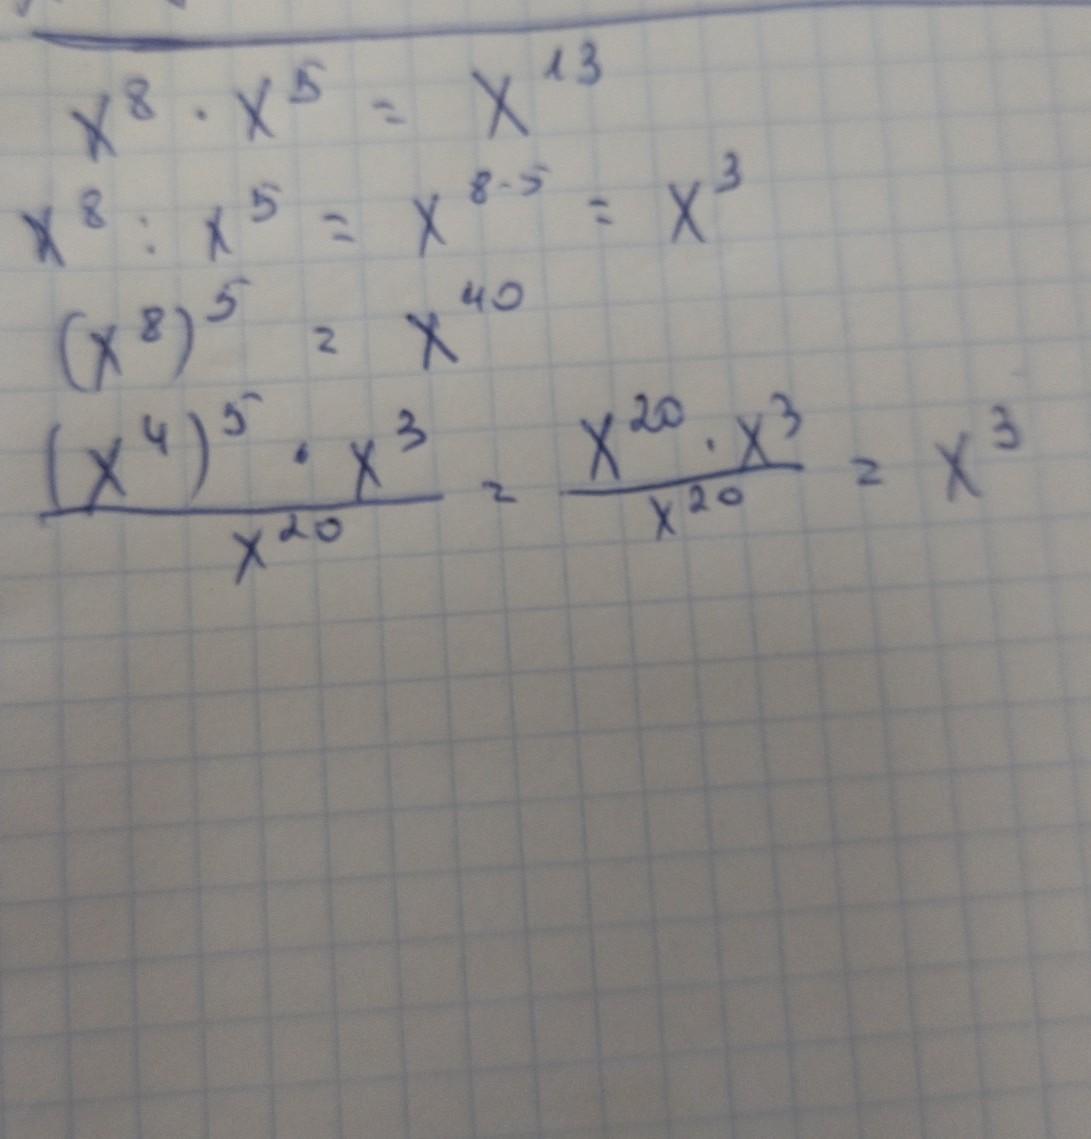 x⁸ · x⁵ = x¹³
x⁸ : x⁵ = x⁸⁻⁵ = x³
(x⁸)⁵ = x⁴⁰
(x⁴)⁵ · x³ / x²⁰ = x²⁰ · x³ / x²⁰ = x³